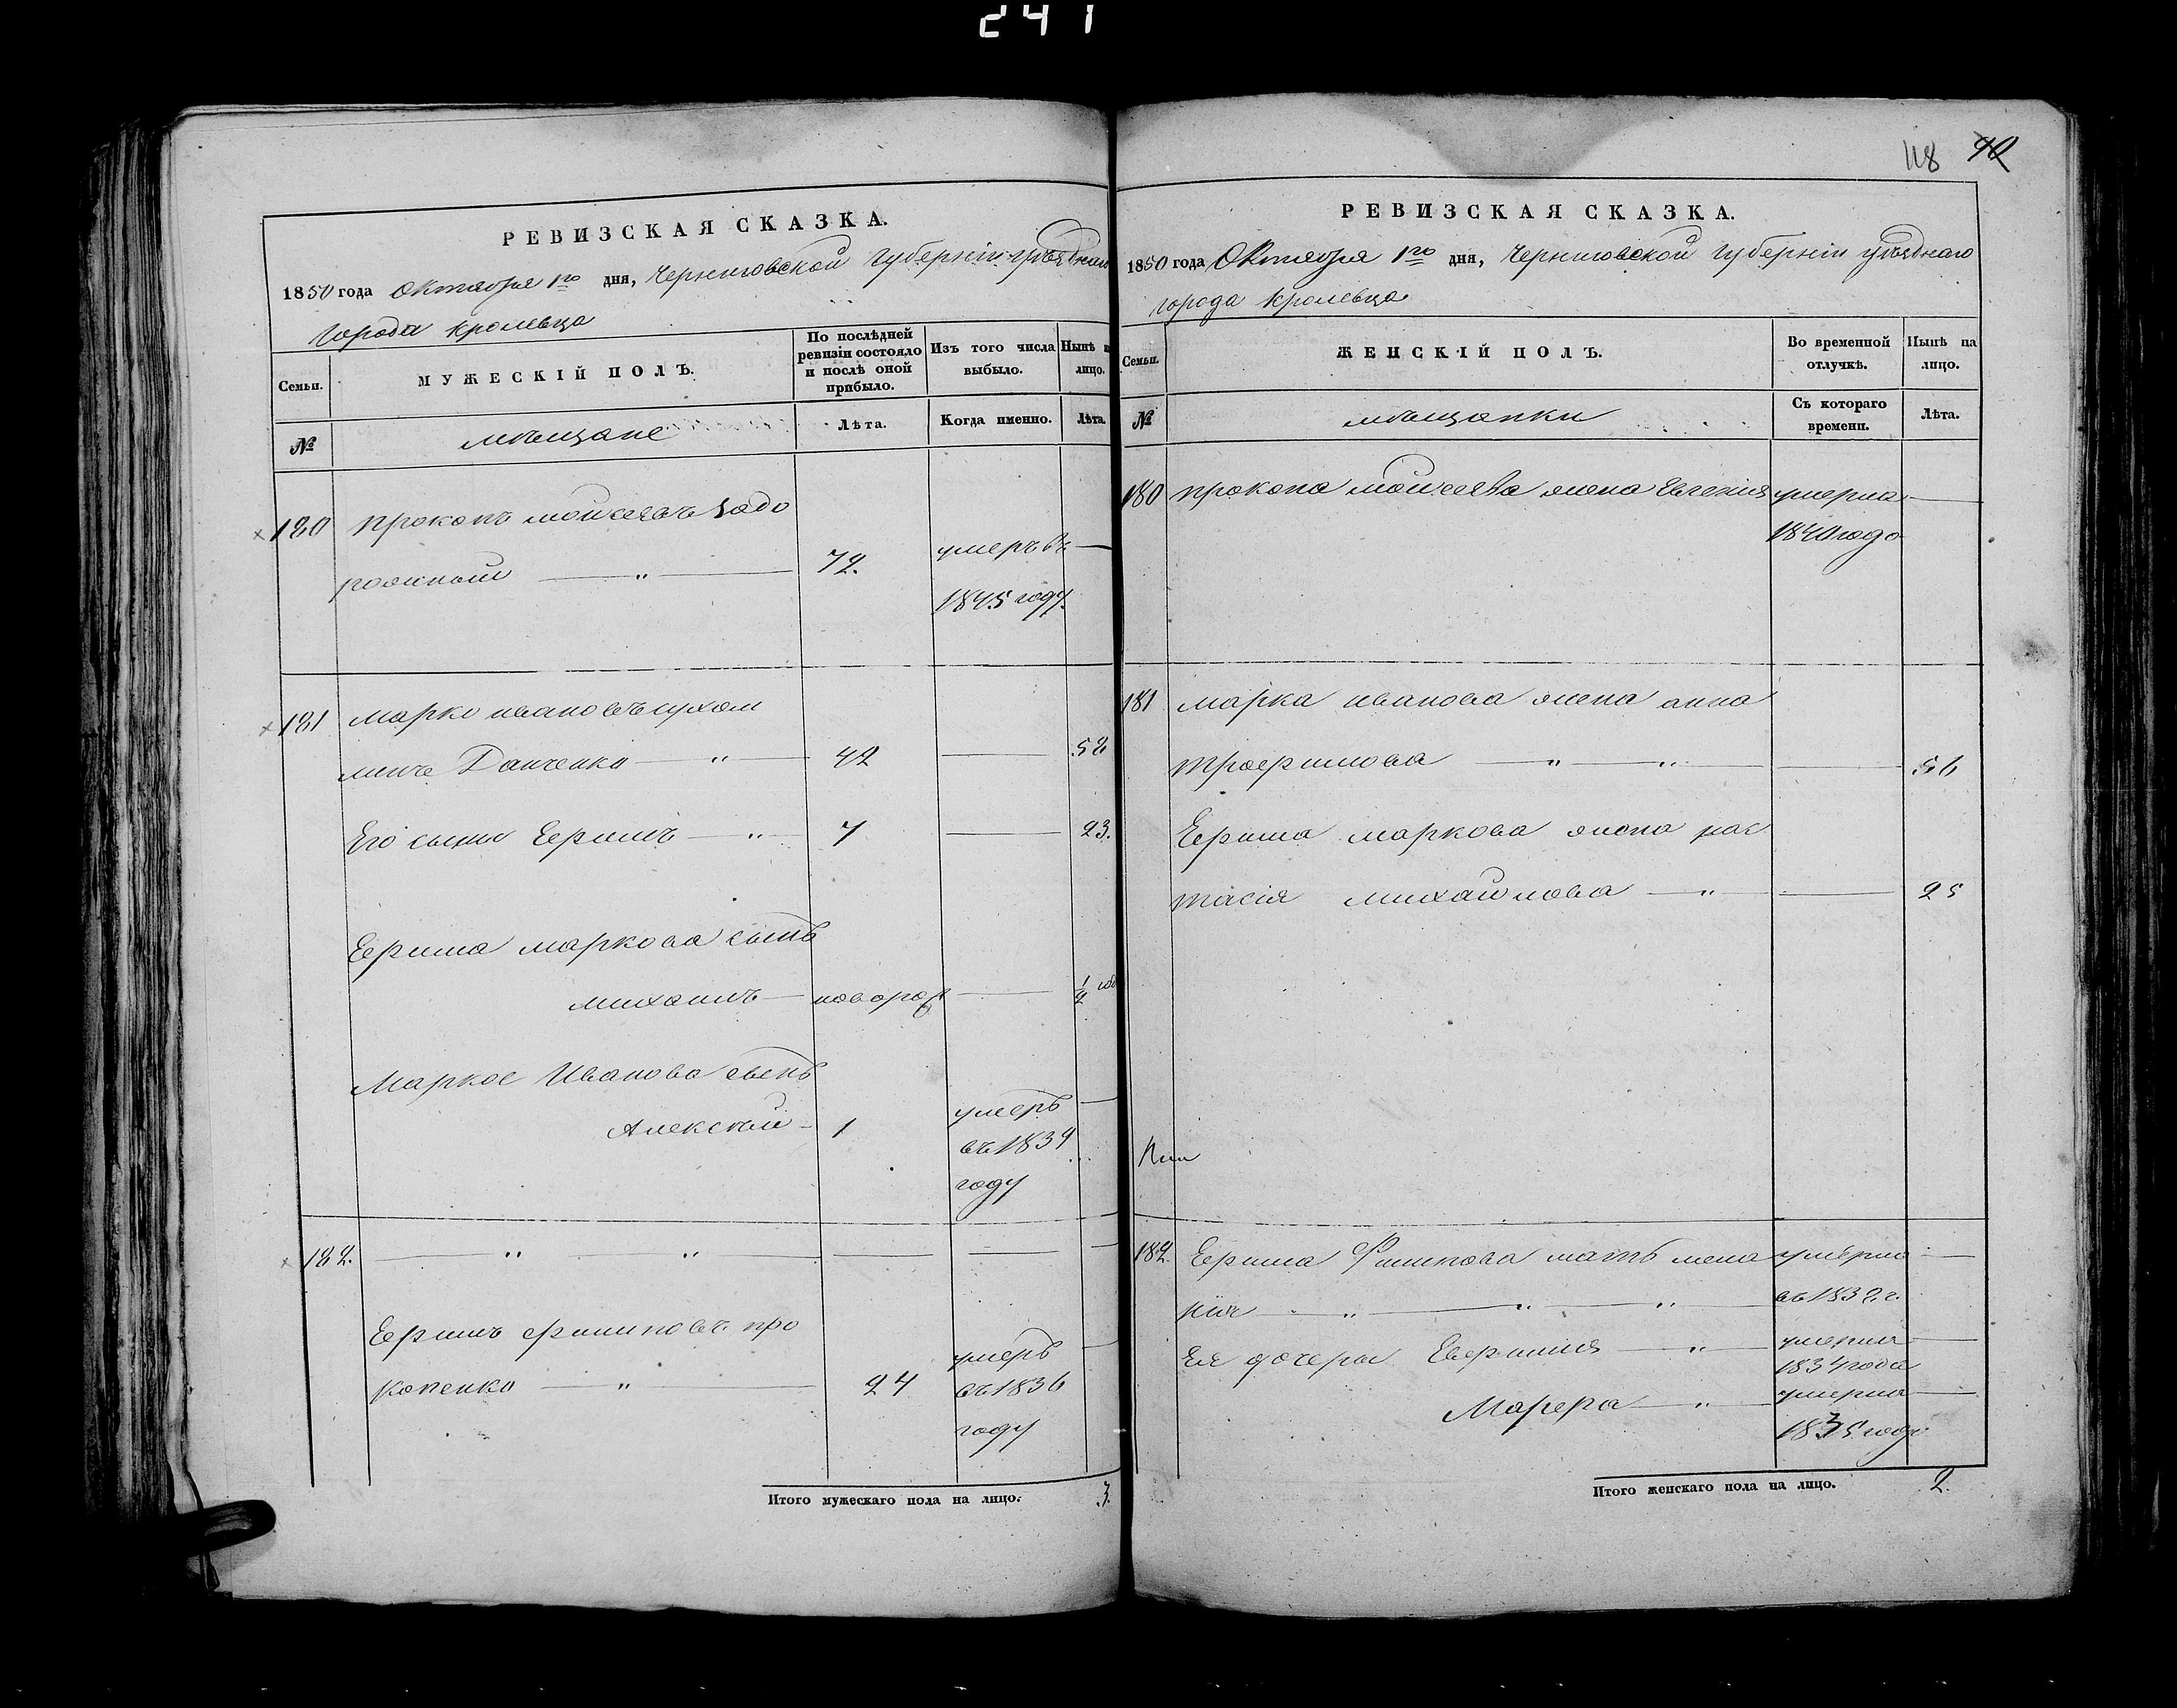 241
РЕВИЗСКАЯ СКАЗКА.
1850 года Октября 1го дня, Черниговской Губерніи уѣзднаго
города Кролевца
Семьи.
МУЖЕСКІЙ ПОЛЪ.
По послѣдней ревизіи состояло и послѣ оной прибыло.
Изъ того числа выбыло.
Нынѣ на лицо.
№
мѣщане
Лѣта.
Когда именно.
Лѣта.
180 Прокопъ Мойсеевъ Задо
рожный — „ — 72. умеръ въ —
1845 году.
181 Марко Ивановъ
Данченко — „ — 42 — 58
Его сынъ Ефимъ — „ — 7 — 23.
Ефима Маркова сынъ
Михаилъ — новорож — 1/2
Марко Иванова сынъ
Алексѣй — 1 умеръ —
въ 1834
году
182. — „ — „ — — — —
Ефимъ Филиповъ Про
копенко — „ — 24 умеръ —
въ 1836
году
Итого мужескаго пола на лицо. 3.
118 90
РЕВИЗСКАЯ СКАЗКА.
1850 года Октября 1го дня, Черниговской Губерніи уѣзднаго
города Кролевца
Семьи.
ЖЕНСКІЙ ПОЛЪ.
Во временной отлучкѣ.
Нынѣ на лицо.
№
мѣщанки
Съ котораго времени.
Лѣта.
180 Прокопа Мойсеева жена Евгенія умерла —
1840 года
181 Марка Иванова жена Анна
Трофимова — „ — „ — — 56
Ефима Маркова жена Нас
тасія Михайлова — „ — — 25
182. Ефима Филипова мать Мела умерла —
нія — „ — „ — „ — въ 1832. г.
Ея дочери Евфимія — „ — умерла —
1834 года
Марфа — „ — умерла —
1835 года
Итого женскаго пола на лицо. 2.